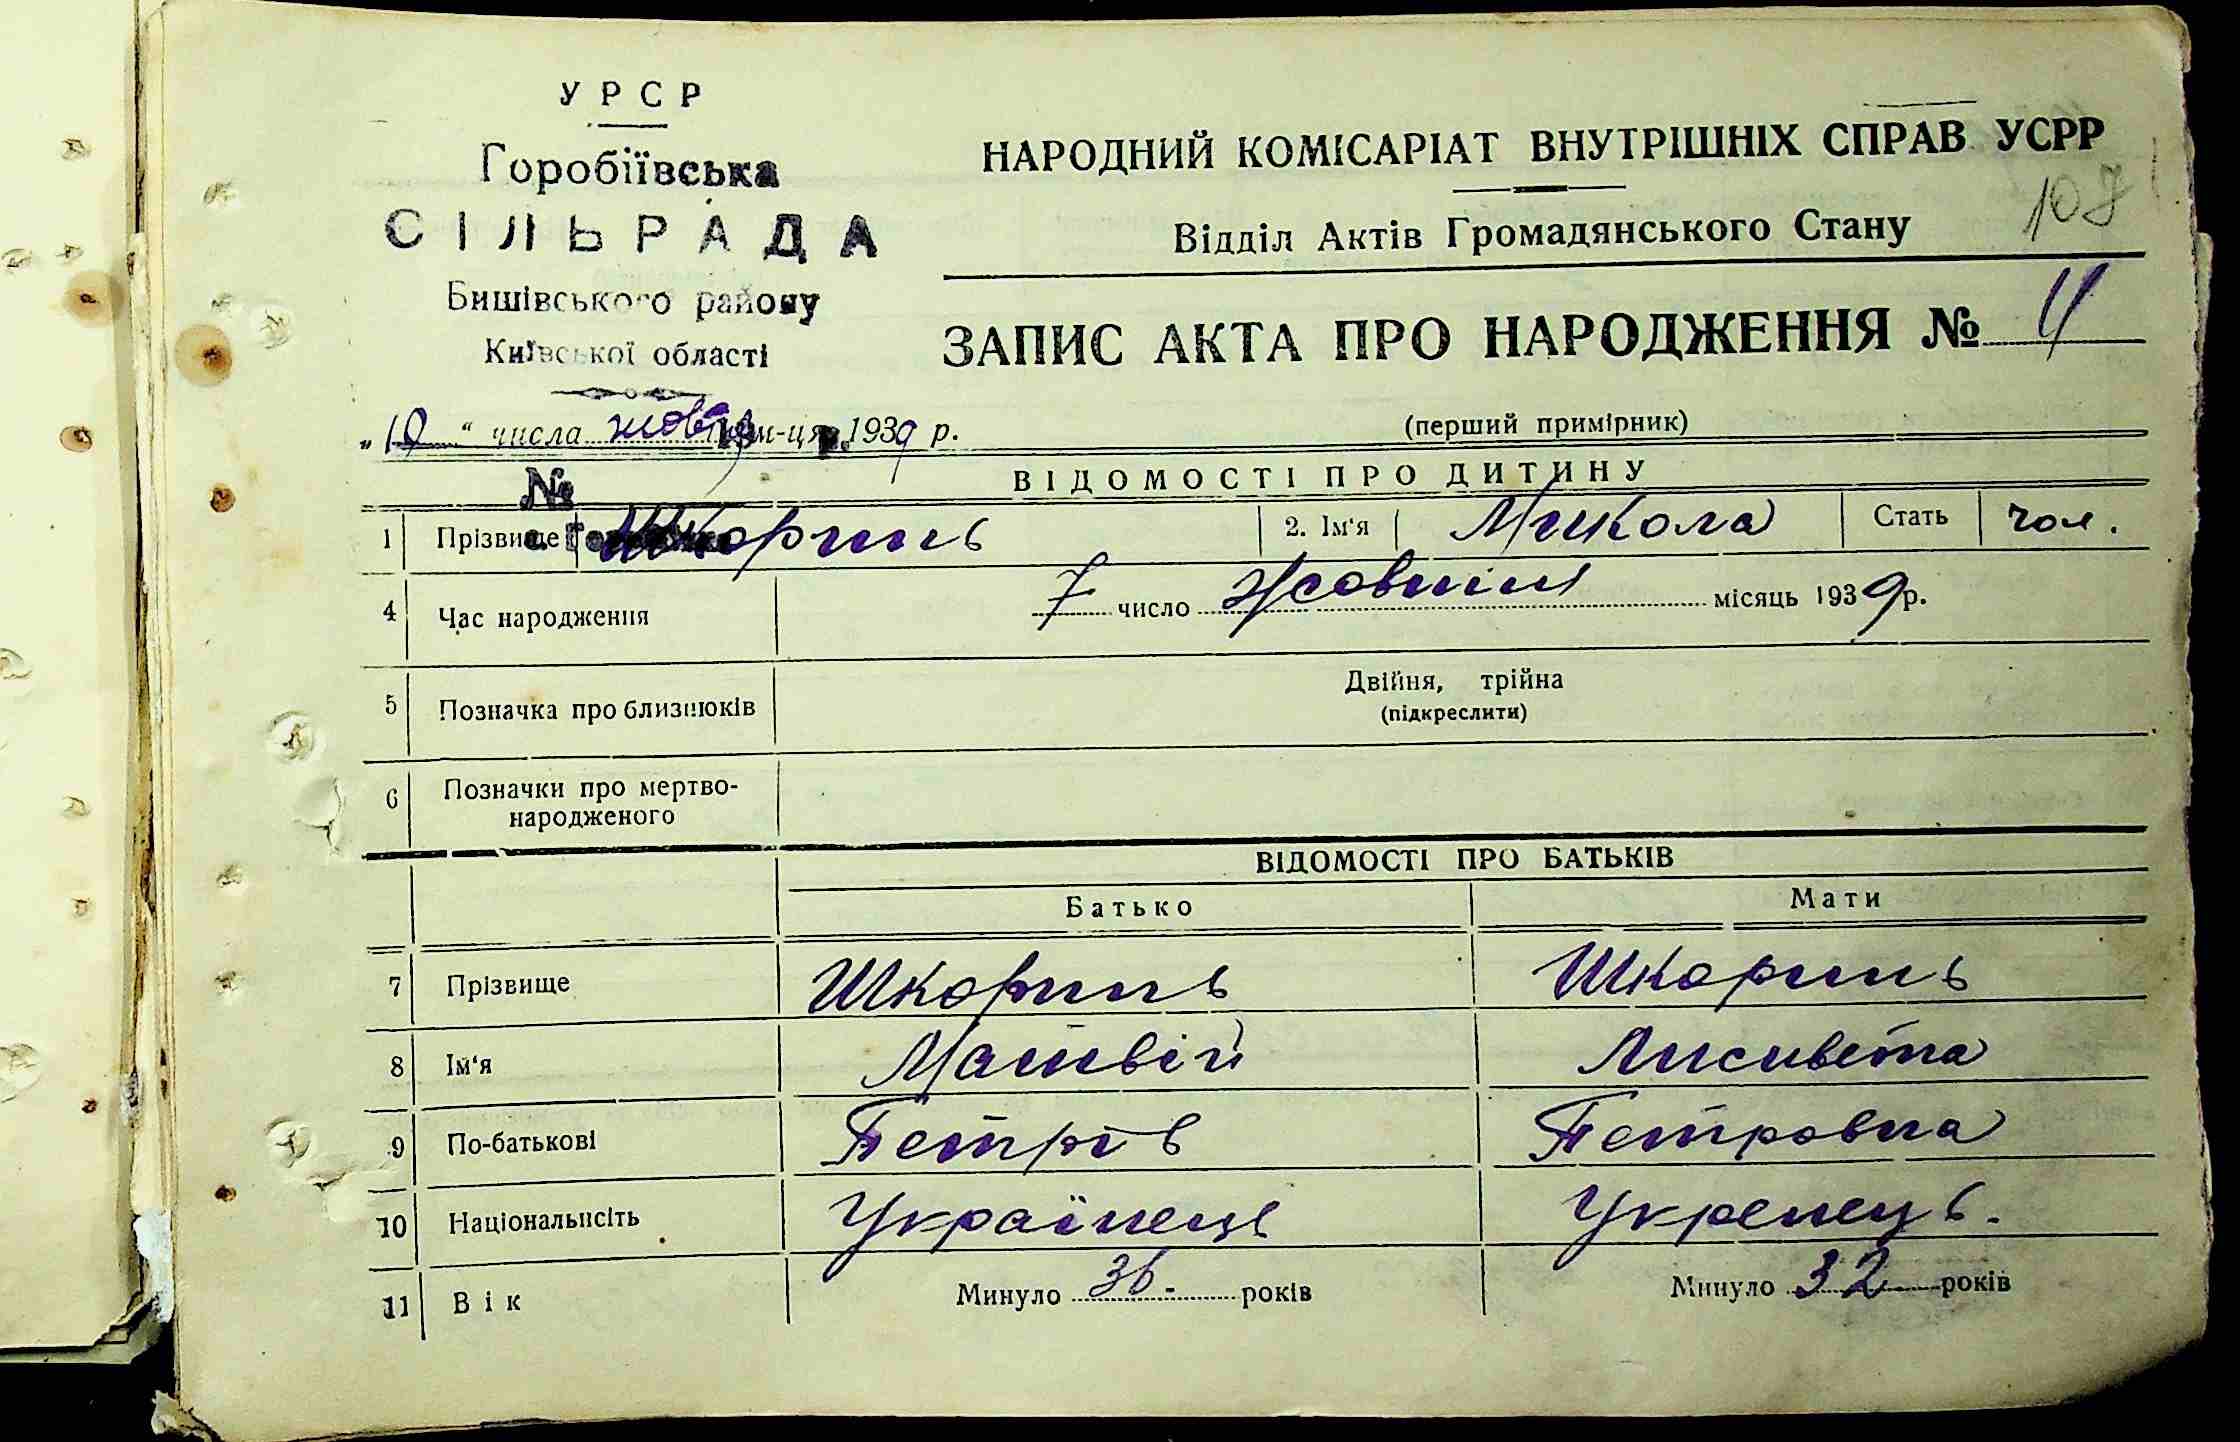 УРСР
Горобіївська
СІЛЬРАДА
Бишівського району
Київської області
НАРОДНИЙ КОМІСАРІАТ ВНУТРІШНІХ СПРАВ УСРР
107
Відділ Актів Громадянського Стану
ЗАПИС АКТА ПРО НАРОДЖЕННЯ № 4
„10“ числа жовтня м-ця 1939 р.
(перший примірник)
№
ВІДОМОСТІ ПРО ДИТИНУ
1 Прізвище Шкоринь 2. Ім'я Микола Стать чол.
4 Час народження 7 число Жовтня місяць 1939 р.
5 Позначка про близнюків Двійня, трійна
(підкреслити)
6 Позначки про мертво-
народженого
ВІДОМОСТІ ПРО БАТЬКІВ
Батько Мати
7 Прізвище Шкоринь Шкоринь
8 Ім'я Матвій Лисивета
9 По-батькові Петрів Петровна
10 Національність Українець Укренець.
11 Вік Минуло 36. років Минуло 32 років